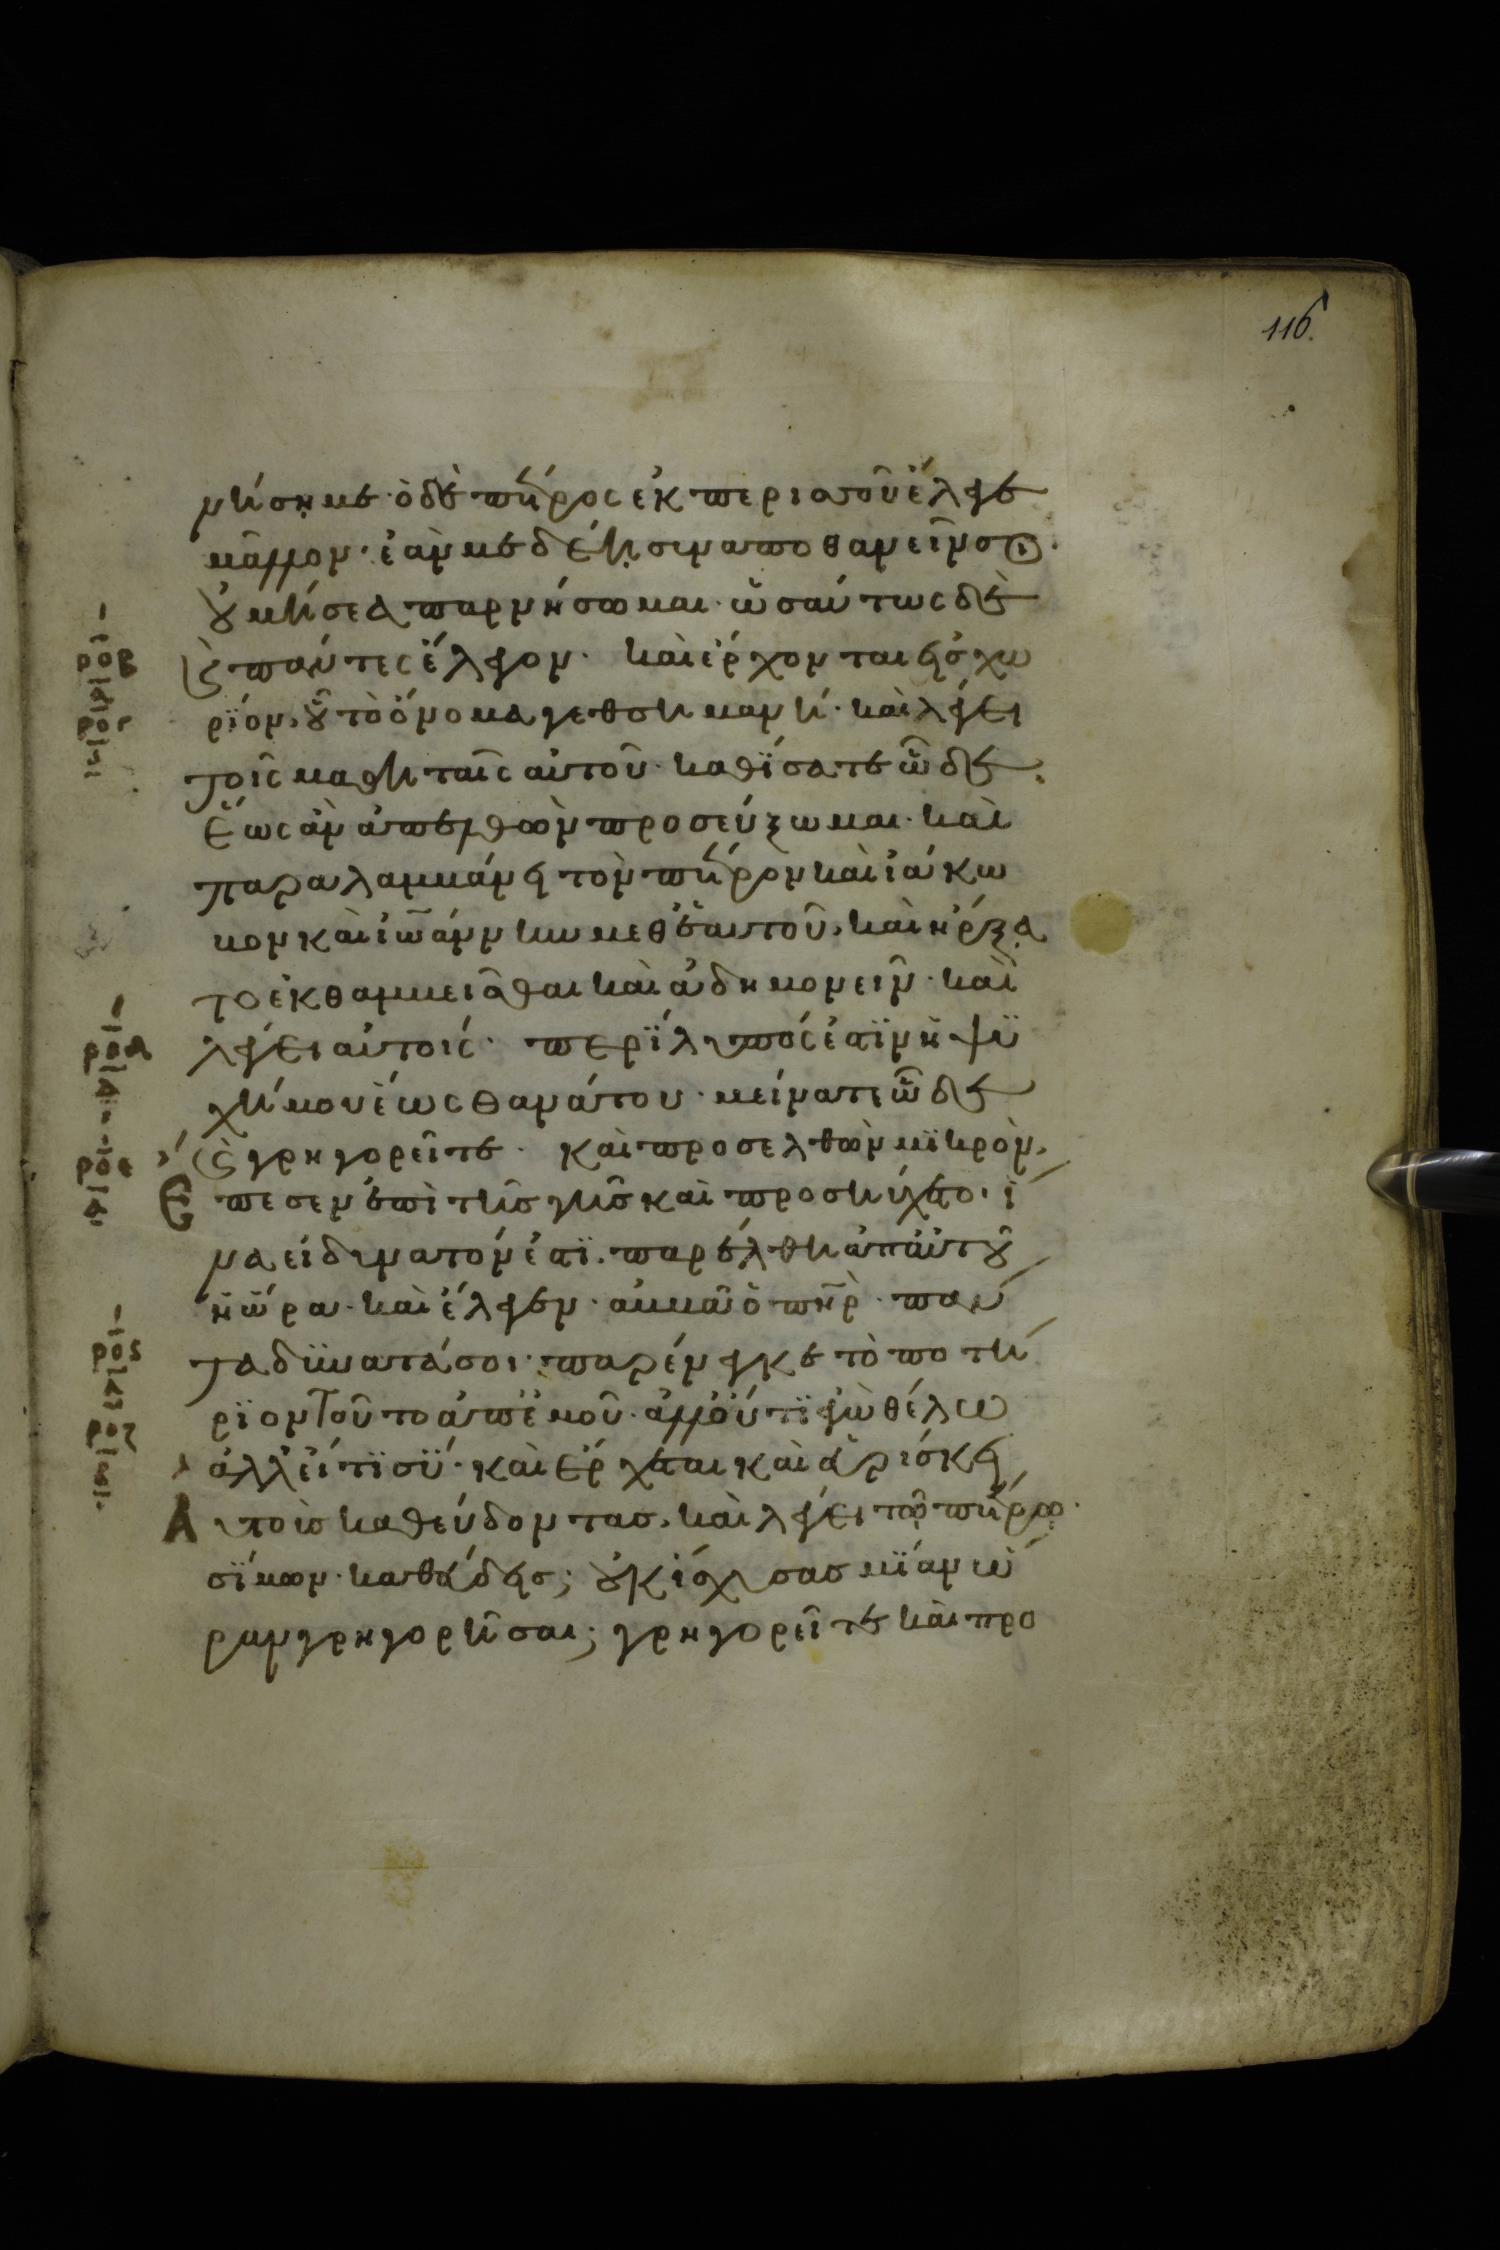 116.
νήση με· ὁ δὲ πέτρος ἐκ περισσοῦ ἔλεγε
μᾶλλον· ἐάν με δέη συναποθανεῖν σοι·
οὐ μή σε ἀπαρνήσωμαι· ὡσαύτως δὲ
ϛ πάντες ἔλεγον· καὶ ἔρχονται εἰς χω
ροβ
ι
ρϊον, οὗ τὸ ὄνομα γεθσημανή· καὶ λέγει
ρογ
τοῖς μαθηταῖς αὐτοῦ· καθΐσατε ὧδε
ἕως ἂν ἀπελθὼν προσεύξωμαι· καὶ
παραλαμβάνει τὸν πέτρον καὶ ἰάκω
βον καὶ ἰωάννην μεθ' ἑαυτοῦ, καὶ ἤρξα
το ἐκθαμβεῖσθαι καὶ ἀδημονεῖν· καὶ
λέγει αὐτοίς· περΐλυπός ἐστϊν ἡ ψϋ
ροδ
δ
χή μου ἕως θανάτου· μείνατε ὧδε
ϛ γρηγορεῖτε· καὶ προσελθὼν μϊκρὸν,
ροε
α
Ἔπεσεν ἐπὶ τῆς γῆς καὶ προσηύχετο· ἵ
να εἰ δυνατόν ἐστϊ. παρέλθη ἀπ' αὐτοῦ
ἡ ὥρα· καὶ ἔλεγεν· ἀββᾶ ὁ πηρ· πάν
τα δϋνατά σοι· παρένεγκε τὸ ποτή
ροϛ
α
ρϊον τοῦτο ἀπ' ἐμοῦ· ἀλλ' οὐ τϊ ἐγὼ θέλω
ροζ
ἀλλ' εἴ τϊ σϋ· καὶ ἔρχεται καὶ εὑρίσκει
Αὐτοὺς καθεύδοντας, καὶ λέγει τῷ πέτρῳ·
σΐμων· καθεύδεις; οὐκ ἴσχυσας μΐαν ὥ
ραν γρηγορῆσαι; γρηγορεῖτε καὶ προ